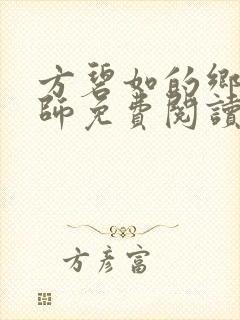 方碧如的鄉
師免費閱讀
方彥富